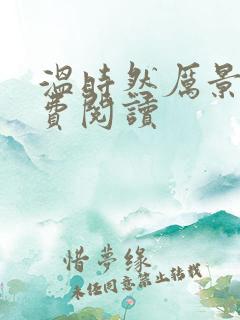 温時然厲景
費閱讀
惜夢緣
未經同意禁止轉載